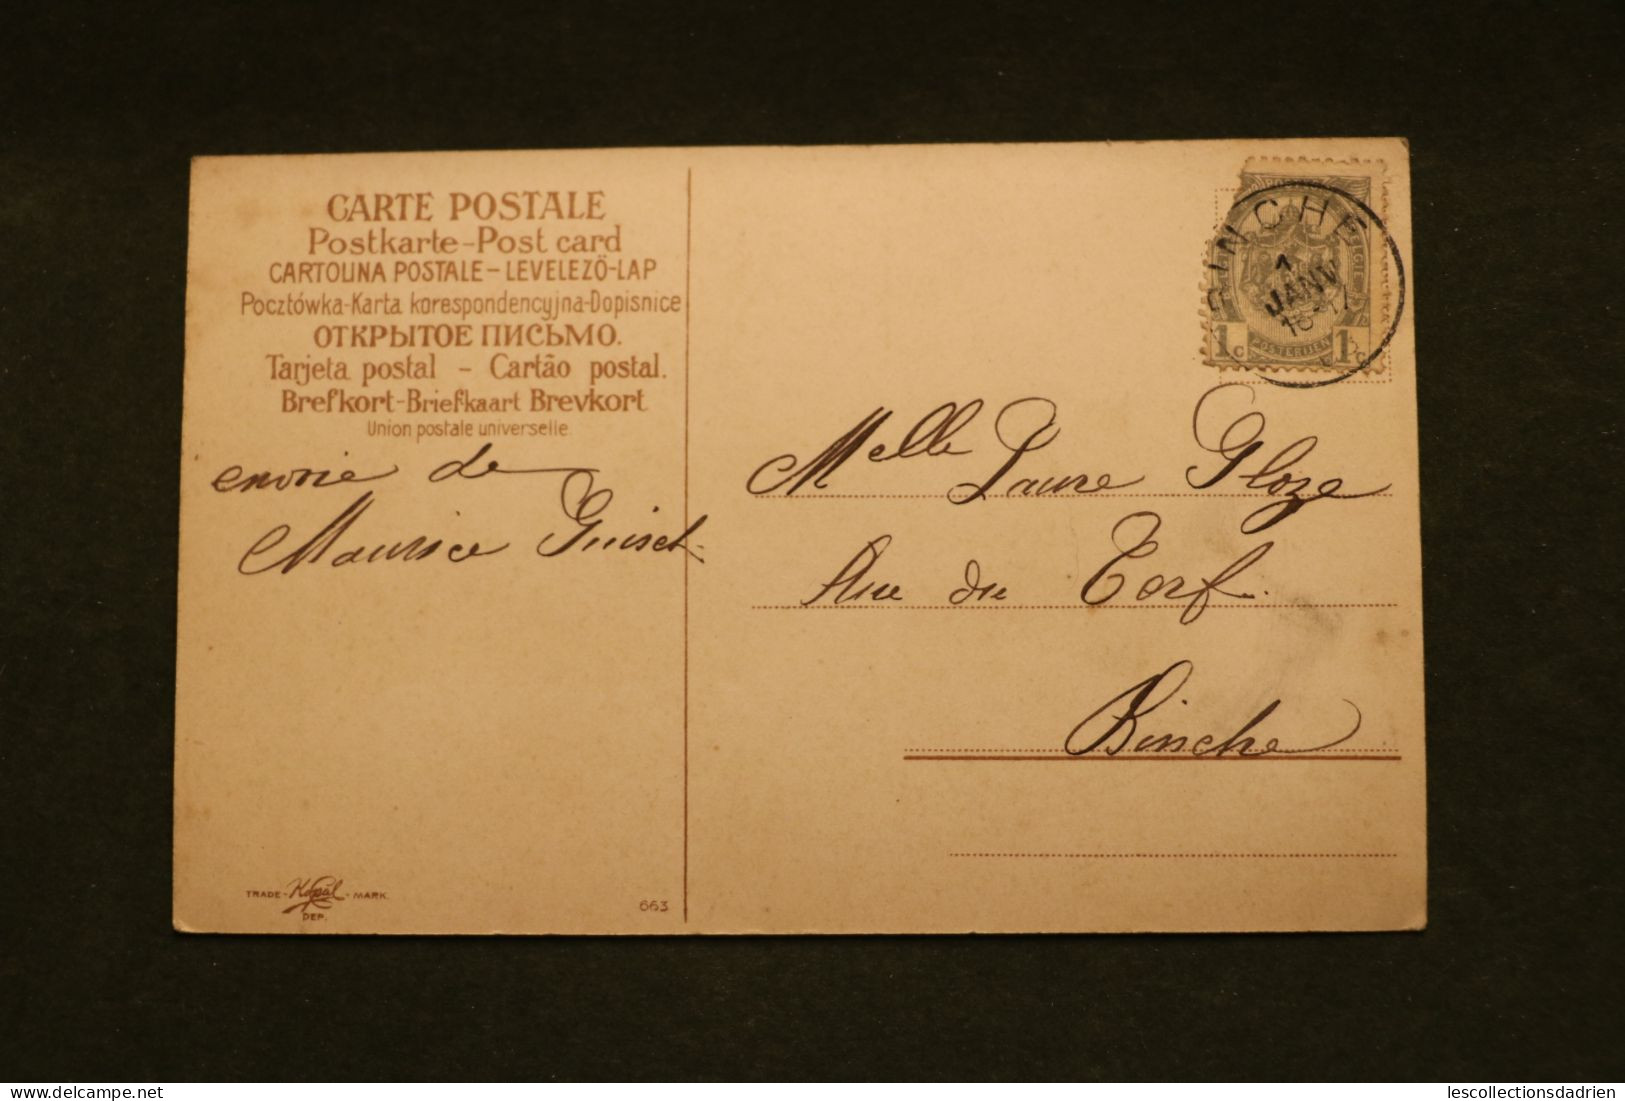 CARTE POSTALE
Postkarte-Post card
CARTOLINA POSTALE-LEVELEZŐ-LAP
Pocztówka-Karta korespondencyjna-Dopisnice
ОТКРЫТОЕ ПИСЬМО.
Tarjeta postal - Cartão postal.
Brefkort-Briefkaart Brevkort
Union postale universelle.
envoie de
Maurice
BINCHE
1
JANV
16-17
1c POSTERIJEN 1c
Melle Laure Gloze
Rue du Cerf.
Binche
TRADE-Kopal-MARK.
DEP.
663
delcampe.net
lescollectionsdadrien